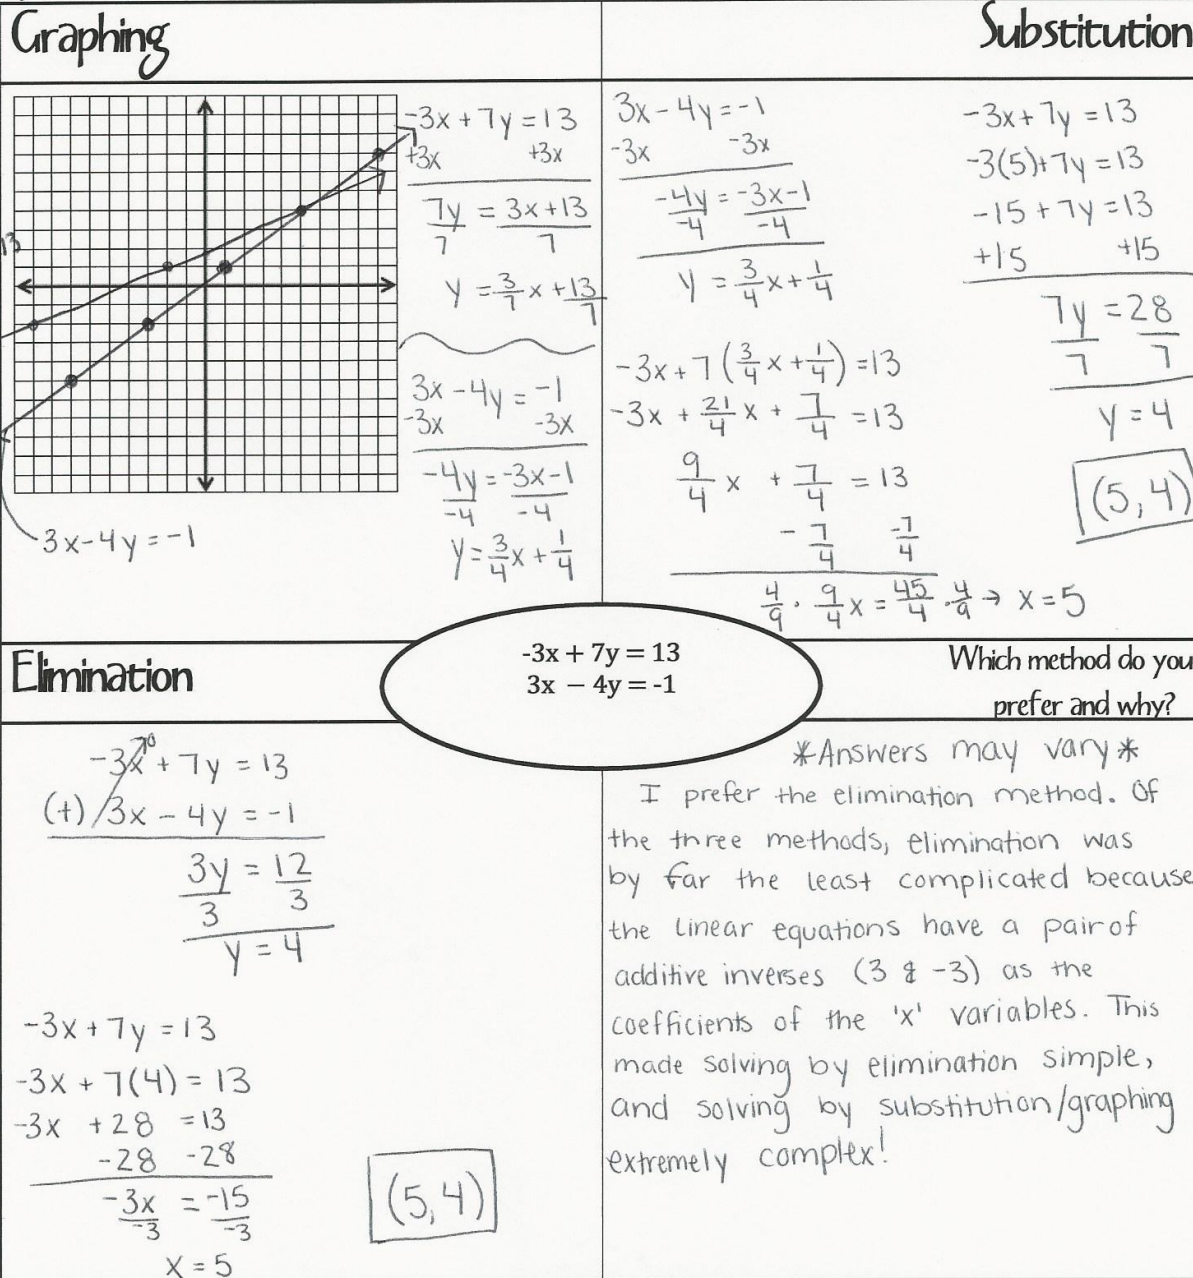 Graphing
-3x + 7y = 13
+3x +3x
7y = 3x+13
7 7
y = 3/7 x + 13/7
3x - 4y = -1
-3x -3x
-4y = -3x-1
-4 -4
y = 3/4 x + 1/4
13
3x-4y = -1
Substitution
3x - 4y = -1
-3x -3x
-4y = -3x-1
-4 -4
y = 3/4 x + 1/4
-3x + 7(3/4 x + 1/4) = 13
-3x + 21/4 x + 7/4 = 13
9/4 x + 7/4 = 13
- 7/4 -7/4
4/9 · 9/4 x = 45/4 · 4/9 → x = 5
-3x + 7y = 13
-3(5)+7y = 13
-15 + 7y = 13
+15 +15
7y = 28
7 7
y = 4
(5,4)
-3x + 7y = 13
3x – 4y = -1
Elimination
-3x⁰ + 7y = 13
(+) 3x - 4y = -1
3y = 12
3 3
y = 4
-3x + 7y = 13
-3x + 7(4) = 13
-3x + 28 = 13
-28 -28
-3x = -15
-3 -3
x = 5
(5,4)
Which method do you
prefer and why?
*Answers may vary*
I prefer the elimination method. Of
the three methods, elimination was
by far the least complicated because
the linear equations have a pair of
additive inverses (3 & -3) as the
coefficients of the 'x' variables. This
made solving by elimination simple,
and solving by substitution/graphing
extremely complex!